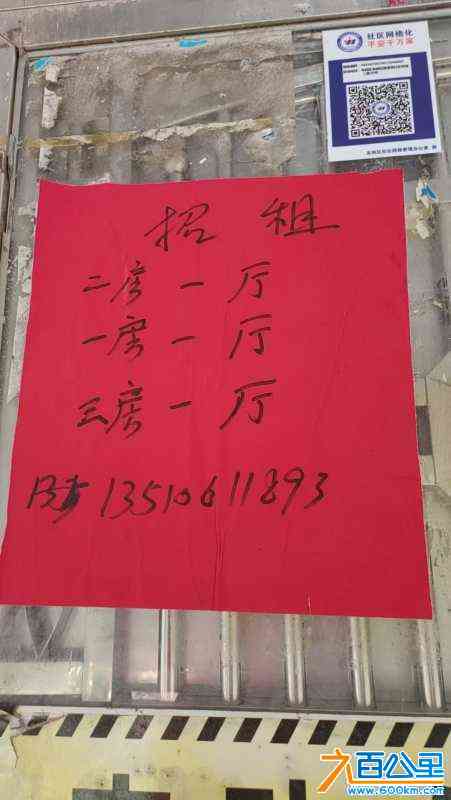 社区网格化
平安千万家
招租
二房一厅
一房一厅
三房一厅
13510611893
九百公里
www.600km.com